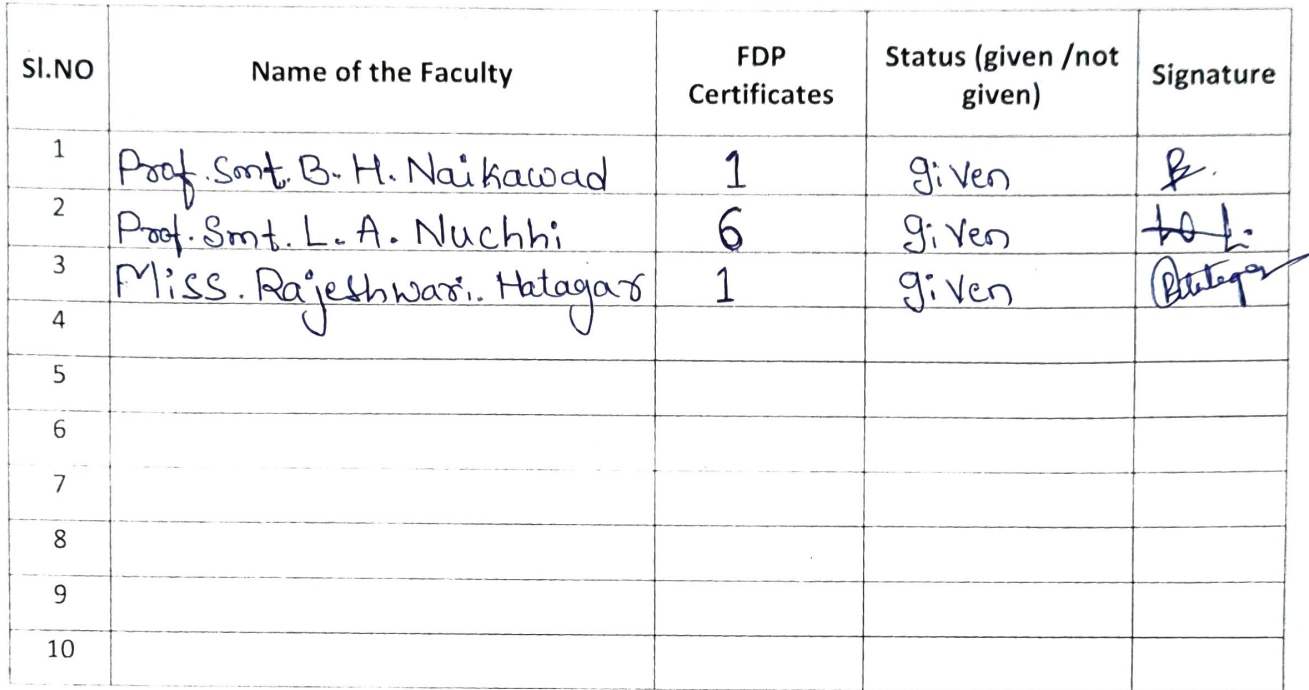 Sl.NO Name of the Faculty FDP Certificates Status (given /not given) Signature
1 Prof. Smt. B. H. Naikawad 1 given
2 Prof. Smt. L. A. Nuchhi 6 given
3 Miss. Rajeshwari. Hatagar 1 given
4
5
6
7
8
9
10